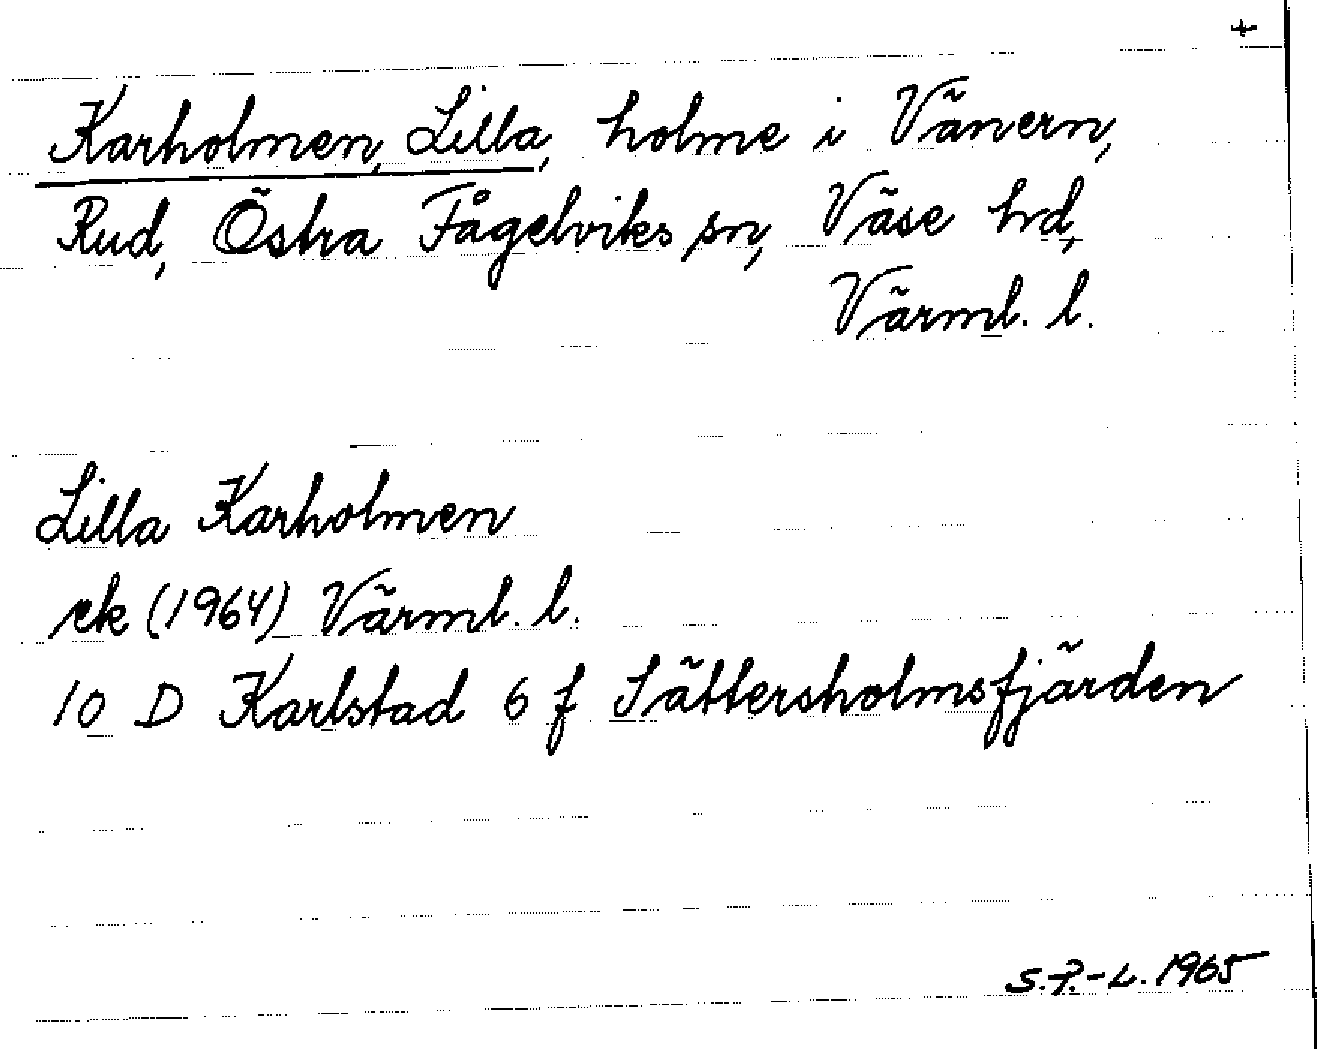 Karholmen, Lilla, holme i Vänern,
Rud, Östra Fågelviks sn, Väse hd,
Värml. l.
Lilla Karholmen
ek (1964) Värml. l.
10 D Karlstad 6 f Sättersholmsfjärden
S.P.-L. 1965